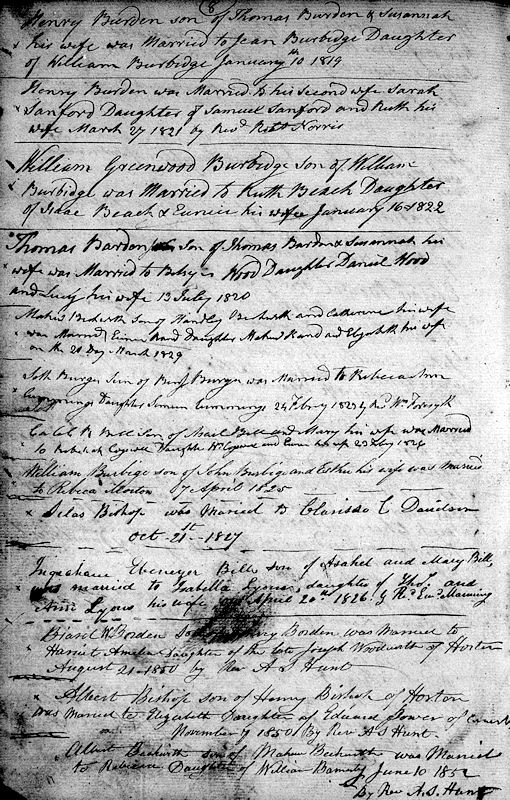 8
Henry Burden son of Thomas Burden & Susannah
his wife was Married to Jean Burbidge Daughter
of William Burbidge January 10th 1819
Henry Burden was Married to his second wife Sarah
Sanford Daughter of Samuel Sanford and Ruth his
wife March 27 1821 by Revd Robt Norris
William Greenwood Burbidge son of William
Burbidge was Married to Ruth Beach Daughter
of Isaac Beach & Eunice his wife January 16th 1822
Thomas Barden son of Thomas Barden & Susannah his
wife was Married to Betsy Wood Daughter Daniel Wood
and Lucy his wife 13 July 1820
Mahew Beckwith Son of Handley Beckwith and Catherine his wife
was Married Eunice Rand Daughter Mahew Rand and Elizabeth his wife
on the 20 Day March 1829
Seth Burges Son of Benj Burges was Married to Rebecca Ann
Cummings Daughter Cummings 24 Febry 1823 by Revd Wm Forsyth
Bill Son of Asael Bill and Mary his wife was Married
to Rebekah Cogswell Daughter Wm Cogswell and Eunice his wife 23 Feby 1824
William Burbige son of John Burbige and Esther his wife was married
to Rebeca 17 April 1825
Silas Bishop was Maried to Clarissa C Davidson
Oct. 21st 1827
Ingraham Ebenezer Bill, son of Asahel and Mary Bill,
was married to Isabella Lyons, daughter of Thos. and
Ann Lyons his wife April 20th 1826. by Rd. Edwd Manning
W. Borden Son of Borden was Married to
Harriet Amelia Daughter of the late Joseph Woodworth of Horton
August 21 1850 by Rev A S Hunt
Albert Bishop son of Henry Bishop of Horton
was Married to Elizabeth Daughter of Edward of
November 7 1850 By Rev A S Hunt.
Albert Beckwith son of Mahew Beckwith was Maried
to Rebecca Daughter of William June 10 1852
By Rev A. S. Hunt